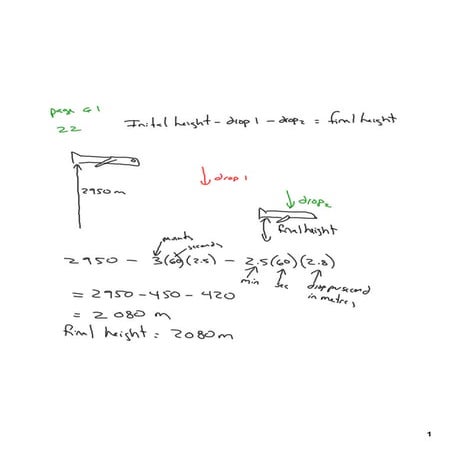 page 61
22
Inital height - drop 1 - drop 2 = final height
2950 m
↓ drop 1
↓ drop 2
final height
minutes
seconds
2950 - 3(60)(2.5) - 2.5(60)(2.8)
min sec drop per second
in metres
= 2950 - 450 - 420
= 2080 m
final height = 2080 m
1